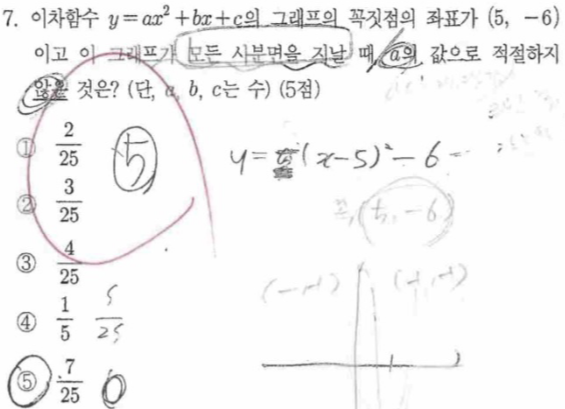 7. 이차함수 y=ax²+bx+c의 그래프의 꼭짓점의 좌표가 (5, -6)
이고 이 그래프가 모든 사분면을 지날 때 a의 값으로 적절하지
않은 것은? (단, a, b, c는 수) (5점)
① 2/25
5
② 3/25
y = (x-5)² - 6
(5, -6)
③ 4/25
④ 1/5
5/25
⑤ 7/25